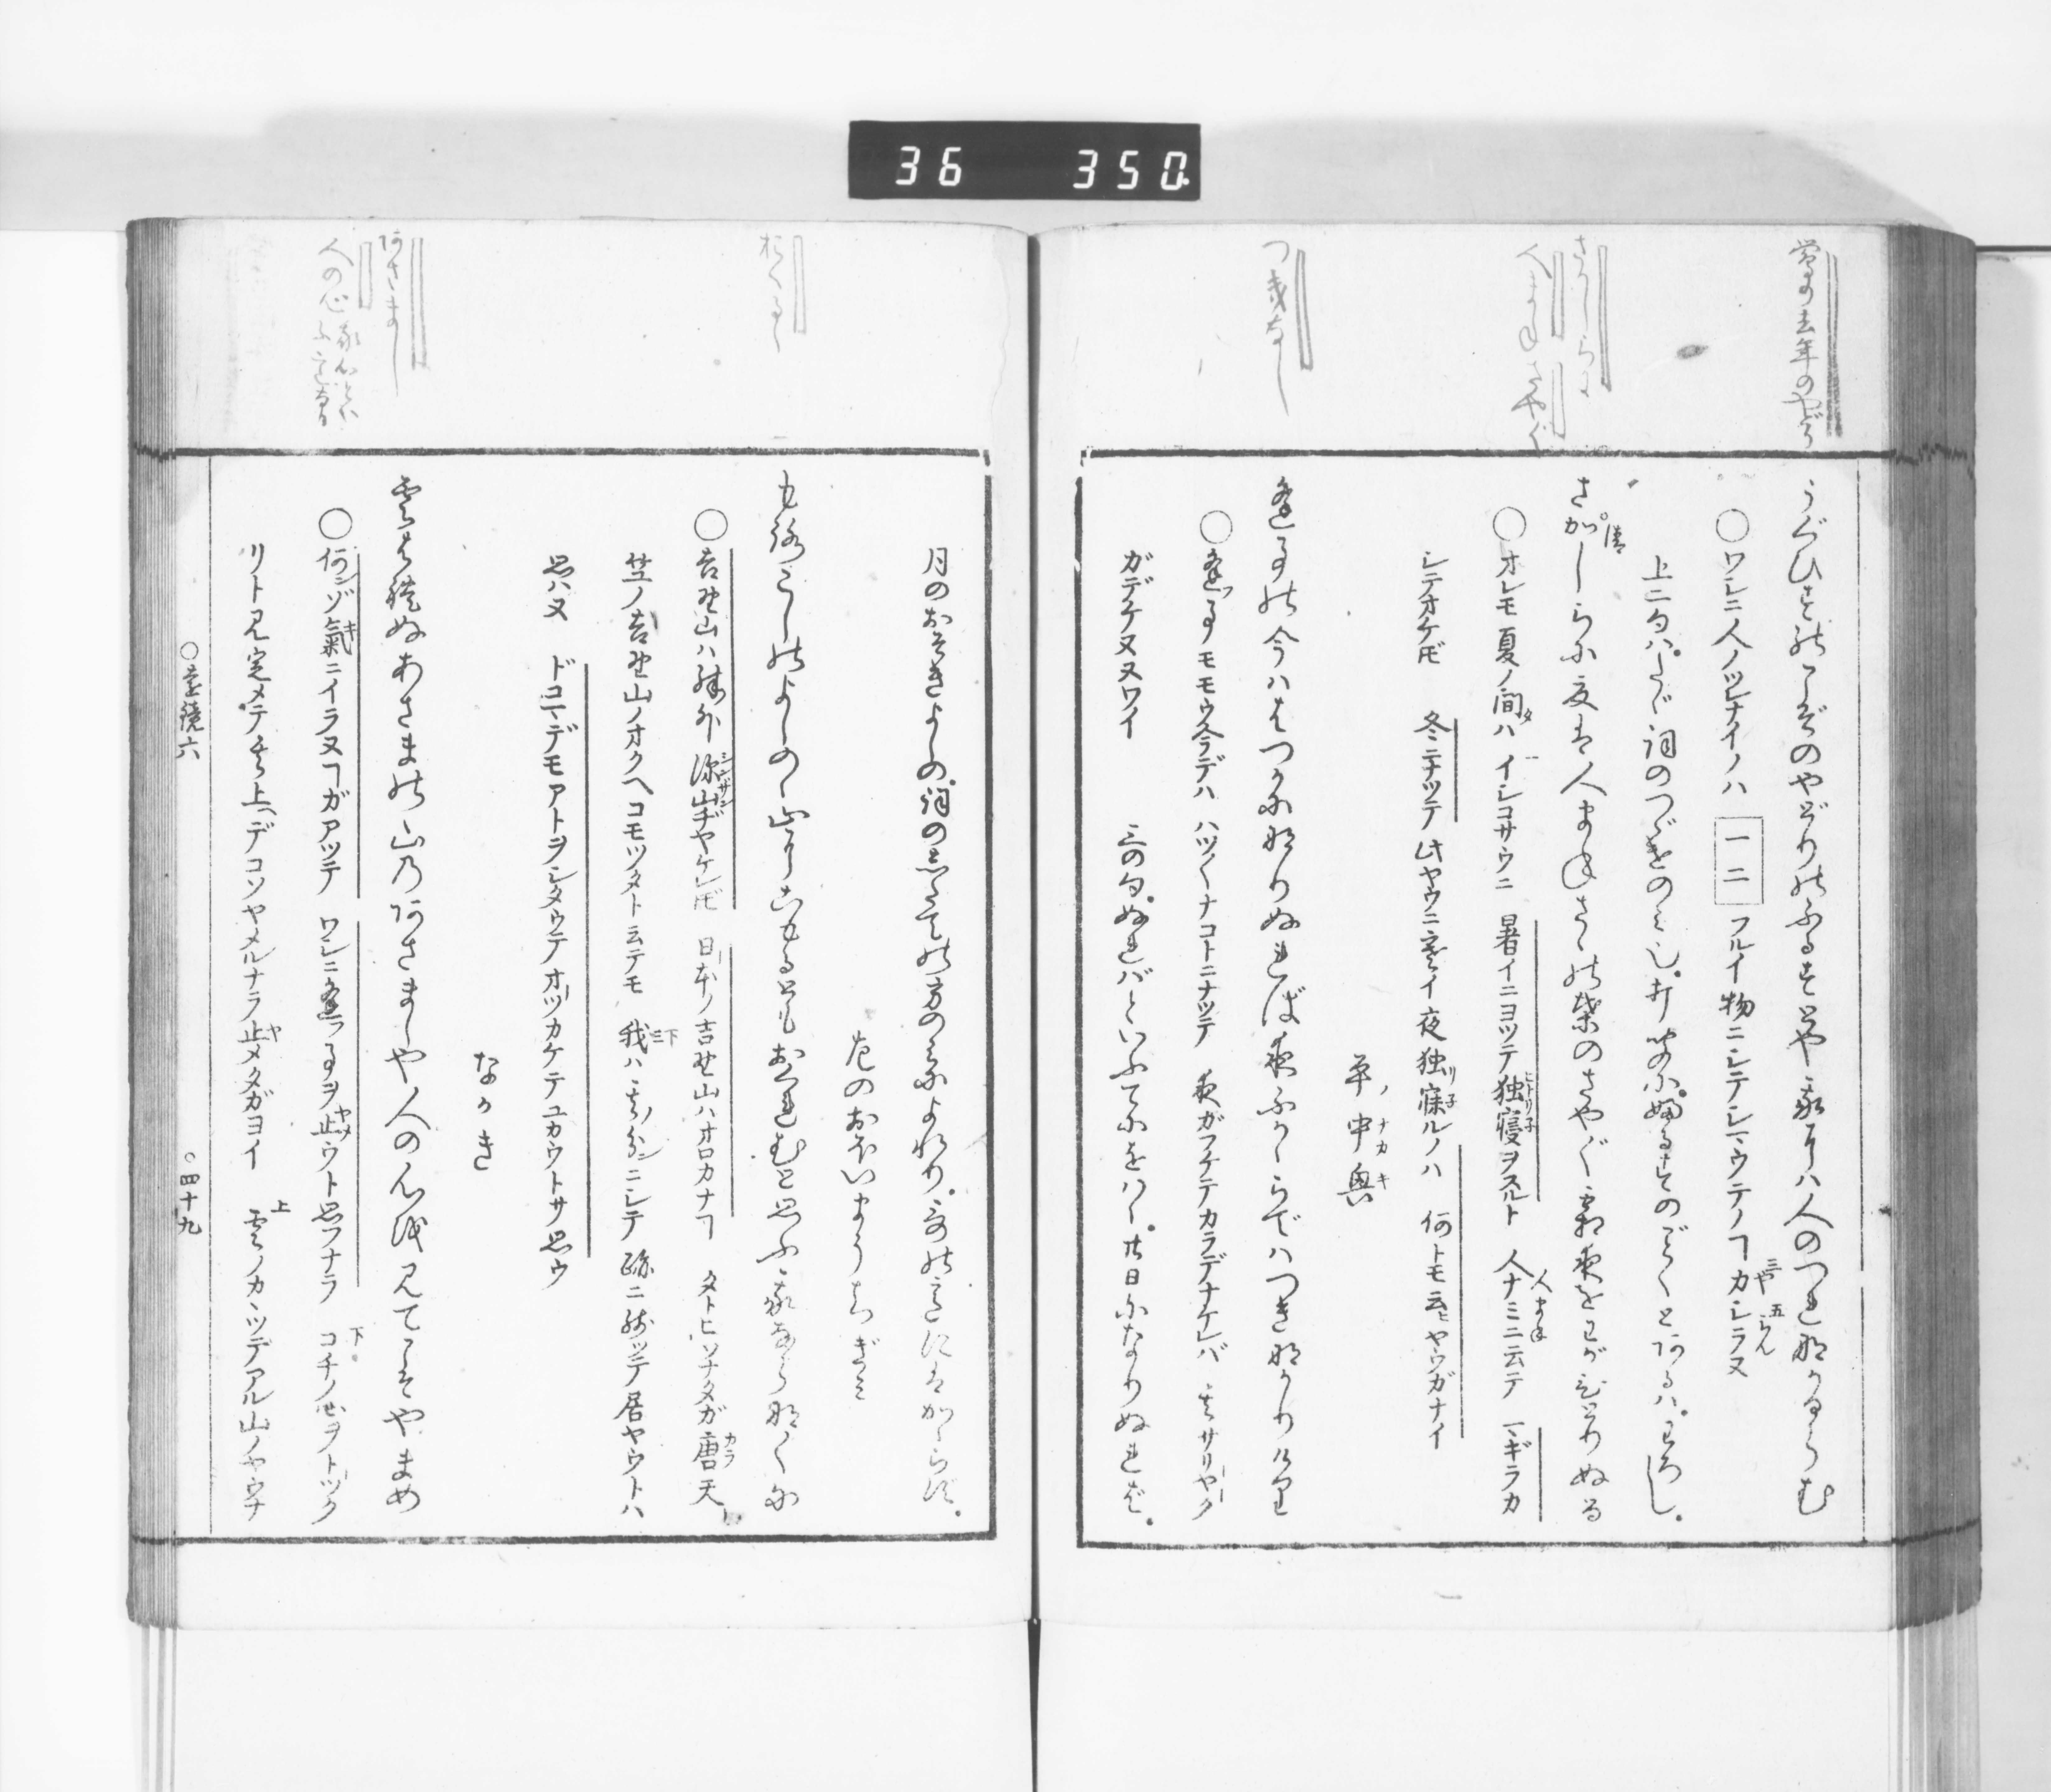 36 350
鶯の去年のやどり
うぐひすのこぞのやどりのふるすとや我には人のつれなかるらむ
○ワシニ人ノツレナイノハ 一二 フルイ物ニシテシマウテノヿカシラヌ
上二句ハ。たゞ詞のつゞきのみ也。打聞に。ふるすのごとくとあるハ。わろし。
さかしらに
人まね さやぐ
さかしらに夏は人まねさゝの葉のさやぐ霜夜をわがひとりぬる
○オレモ夏ノ間ハ イシコサウニ 暑イニヨツテ独寝ヲスルト 人ナミニ云テ マギラカ
シテオケドモ 冬ニナツテ此ヤウニ寒イ夜独リ寐ルノハ 何トモ云ヒヤウガナイ
平ノ中興
つきなし
逢事の今ハはつかになりぬれば夜ふかゝらでハつきなかりけり
○逢フ事モモウ今デハ ハツ〱ナコトニナツテ 夜ガフケテカラデナケレバ
ガデケヌヌワイ 三の句。ぬればといふてにをハ〱。廿日になりぬれば。
月のおそきよしの。詞のしたての方のみによれり。哥の意にはかゝらず。
左のおほいまうちぎみ
おくるゝ
もろこしのよしのゝ山にこもるともおくれむと思ふ我ならなくに
○吉野山ハ殊外深山ヂヤケレドモ 日本ノ吉野山ハオロカナヿ タトヒソナタガ唐天
竺ノ吉野山ノオクヘコモツタト云テモ 我ハ其ノ分ンニシテ跡ニ残ツテ居ヤウトハ
思ハヌ ドコマデモアトヲシタウテオツカケテユカウトサ思ウ
なかき
あさまし
人の心
雲はれぬあさまの山のあさましや人の心を見てこそやまめ
○何ンゾ氣ニイラヌヿガアツテ ワシニ逢フ事ヲ止ウト思フナラ コチノ心ヲトツク
リト見定メテ其上ヘデコソヤメルナラ止メタガヨイ 雲ノカヽツテアル山ノヤウナ
○遠鏡六 ○四十九